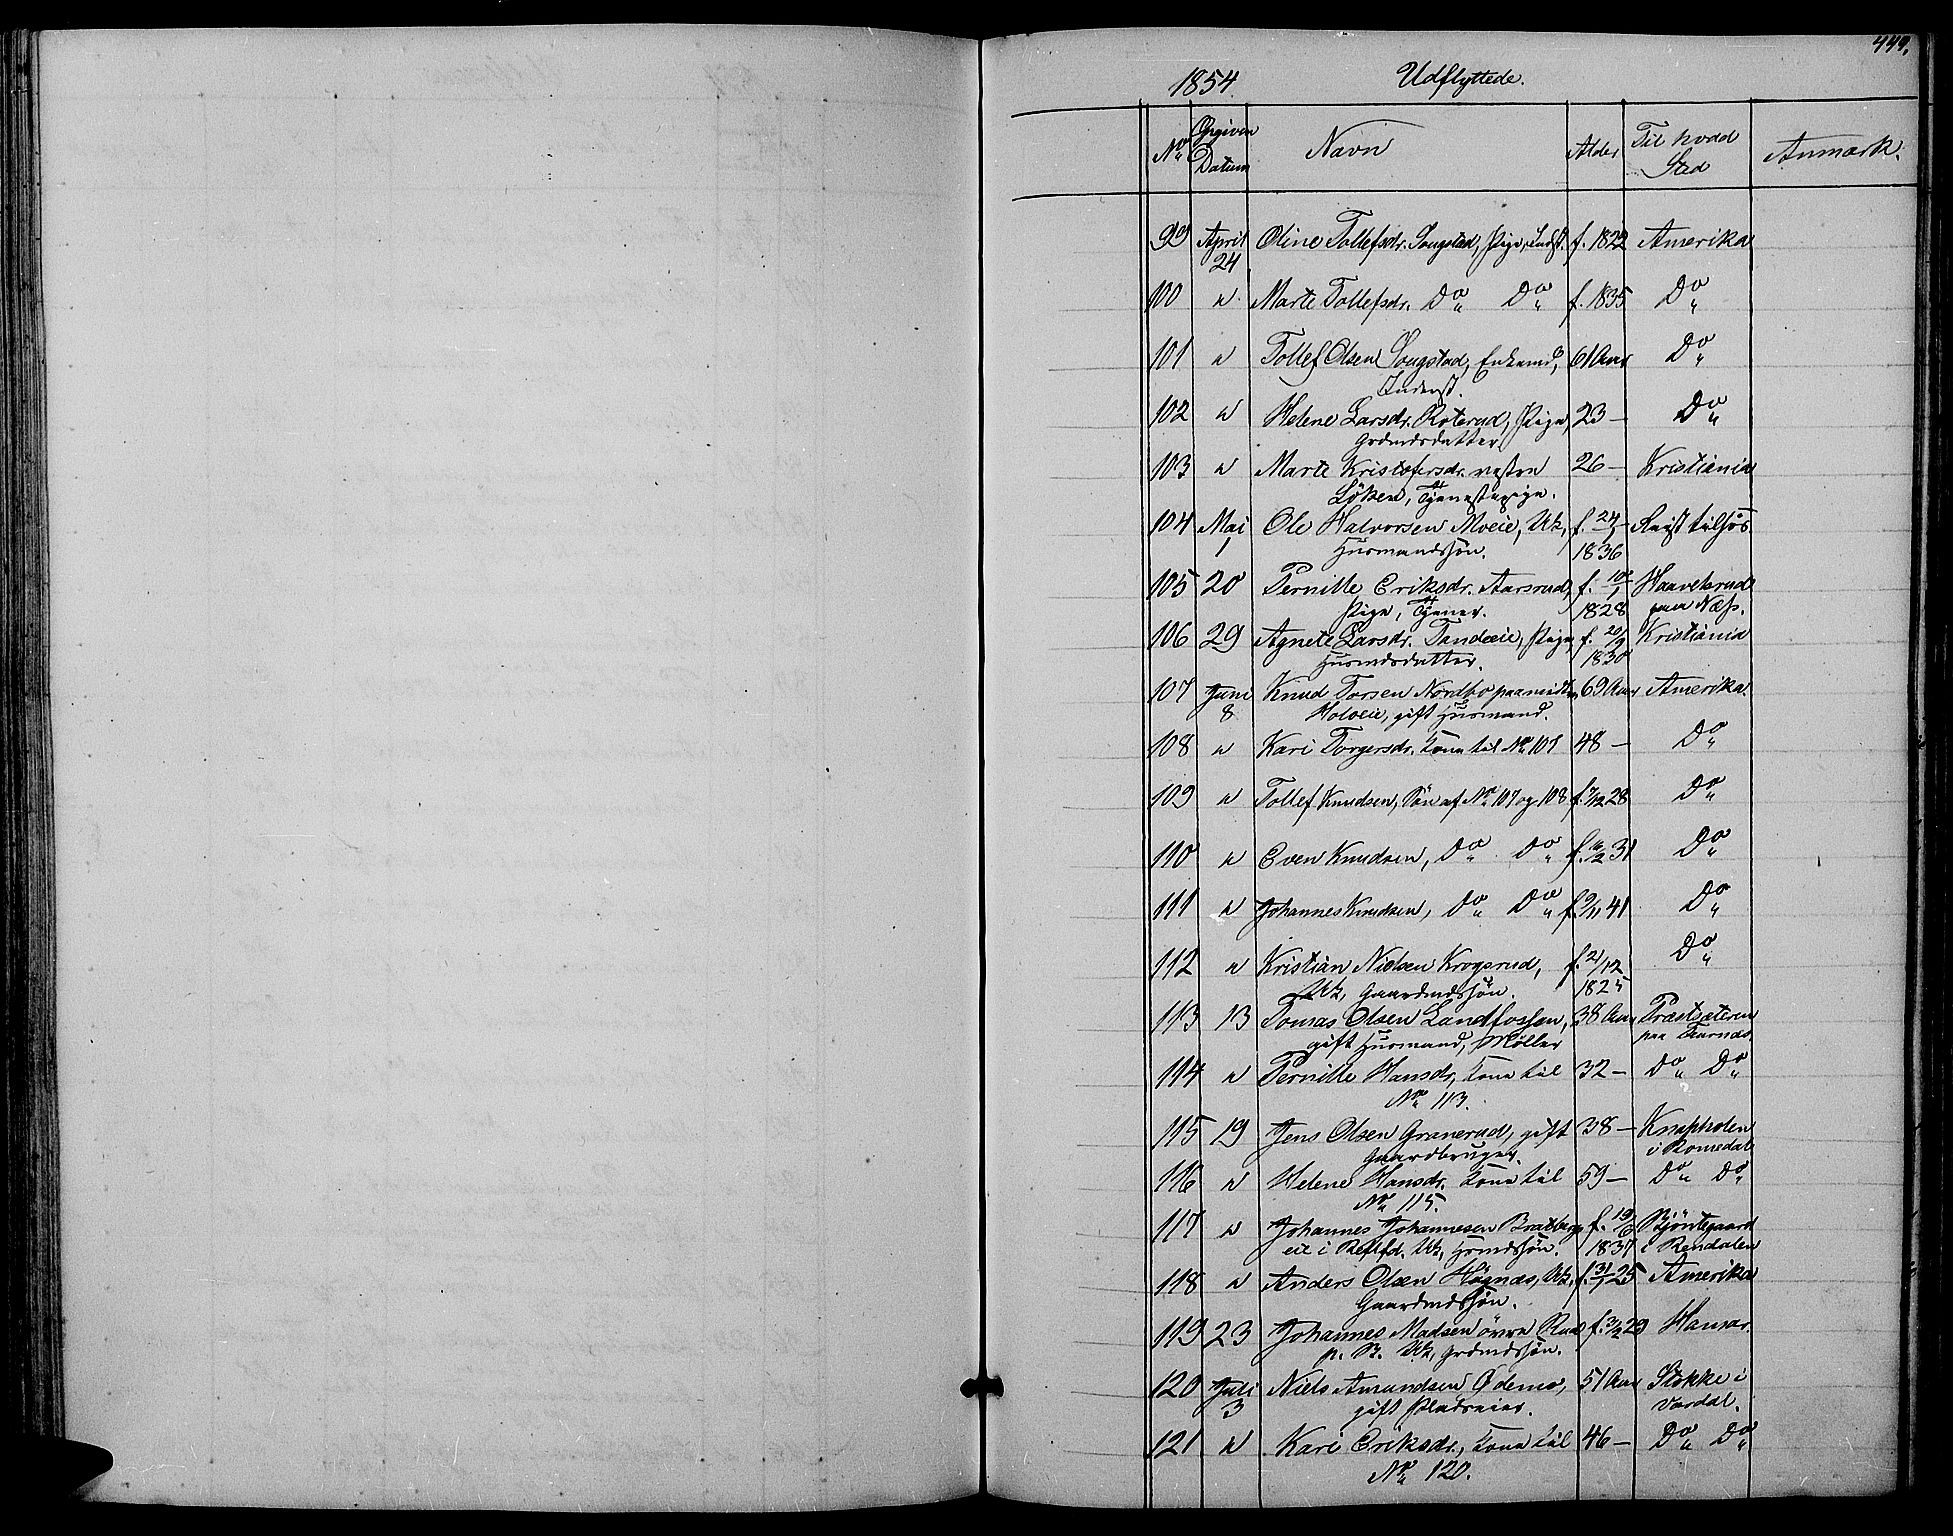 449.
1854. Udflyttede.
No Opgiven Datum Navn Alder Til hvad Sted Anmærk.
99 April 24 Oline Tollefsdr. Sougstad, Pige, Inderst. f. 1822 Amerika
100 " Marte Tollefsdr. Do Do f. 1835 Do
101 " Tollef Olsen Sougstad, Enkemd, 61 Aar Do
Inderst.
102 " Helene Larsdr. Roterud, Pige, 23 — Do
Grdmdsdatter
103 " Marte Kristofersdr. vestre 26 — Kristiania
Löken, Tjenestepige.
104 Mai 1 Ole Halvorsen Moeie, Uk, f. 24/1 Reist tilsøs.
Husmandssøn. 1836
105 20 Pernille Eriksdr. Aarsrud, f. 10/1 Haavelsrud
Pige, Tjener. 1828 paa Næs.
106 29 Agnete Larsdr. Tandeie, Pige, f. 20/9 Kristiania
Husmdsdatter. 1830
107 Juni 8 Knud Torsen Nordbo paa midtre 69 Aar Amerika.
Holoeie, gift Husmand.
108 " Kari Torgersdr. Kone til No 107 48 — Do
109 " Tollef Knudsen, Søn af No 107 og 108 f. 7/12 28 Do
110 " Even Knudsen, Do Do f. 16/2 31 Do
111 " Johannes Knudsen, Do Do f. 9/11 41 Do
112 " Kristian Nielsen Krogsrud, f. 21/12 Do
Uk, Gaardmdssøn. 1825
113 13 Tomas Olsen Landfossen, 38 Aar Præstsæteren
gift Husmand, Møller paa Furnæs.
114 " Pernille Hansdr, Kone til 32 — Do Do
No 113.
115 19 Jens Olsen Granerud, gift 38 — Knapholen
Gaardbruger. i Romedal
116 " Helene Hansdr. Kone til 59 — Do Do
No 115.
117 " Johannes Johannesen Bratberg f. 19/6 Bjöntegaard
eie i Reinfd. Uk, Hsmdssøn. 1837 i Rendalen
118 " Anders Olsen Högnæs, Uk, f. 31/1 25 Amerika
Gaardmdssøn.
119 23 Johannes Madsen övre Rud f. 3/2 29 Hamar.
p. B. Uk, Grdmdssøn.
120 Juli 3 Niels Amundsen Ødemo, 51 Aar Stokke i
gift Pladseier. Vardal.
121 " Kari Eriksdr., Kone til 46 — Do Do
No 120.